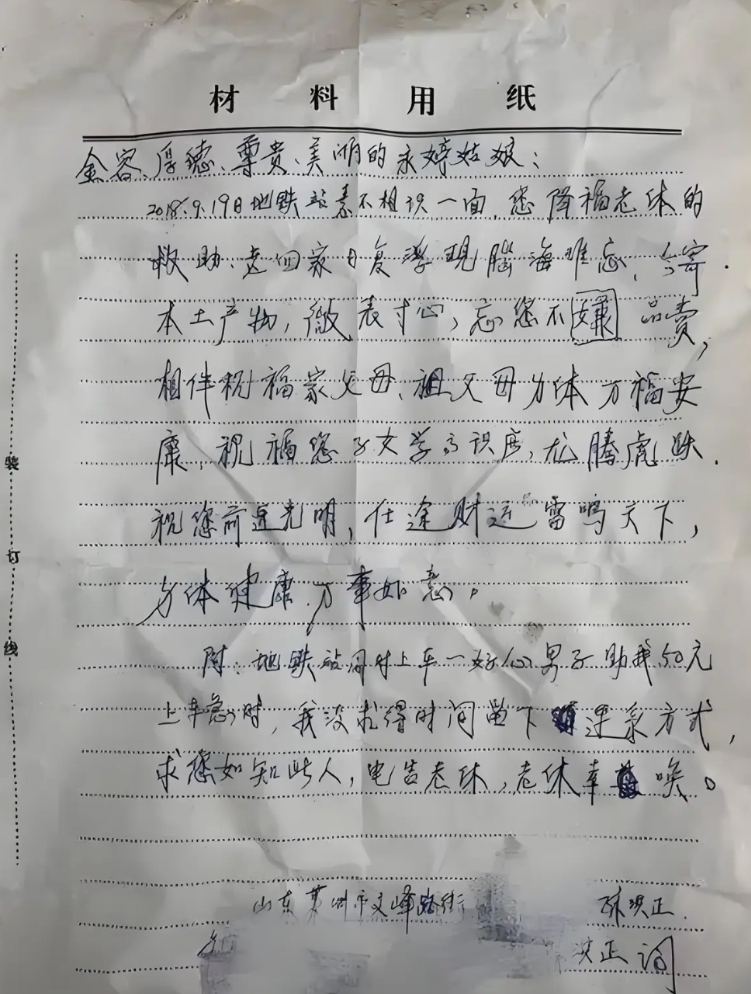 材料用纸
金容、厚德、尊贵、美丽的永婷姑娘:
2018.9.19日地铁站素不相识一面,您降福老休的
救助.老回家日复浮现脑海难忘,今寄
本土产物,微表寸心,忘您不嫌品贵,
相伴祝福家父母、祖父母身体万福安
康,祝福您子女学高识广,龙腾虎跃.
祝您前途光明,仕途财运雷鸣天下,
身体健康万事如意。
附:地铁站同时上车一好心男子助我50元
上车急时,我没求得时间留下连系方式,
求您如知此人,电告老休,老休幸唤。
山东莱州市文峰路街 陈洪正.
洪正
装订线